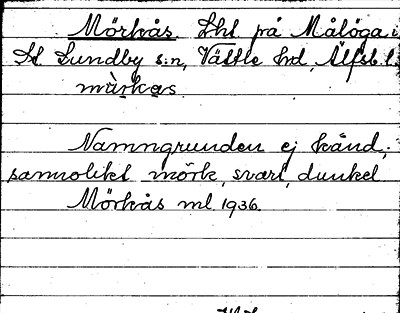 Mörkås. Lht på Målöga i
St Lundby s:n, Vättle hd, Älfsb. l.
màrkas
Namngrunden ej känd;
sannolikt mörk, svart, dunkel
Mörkås ml 1936.